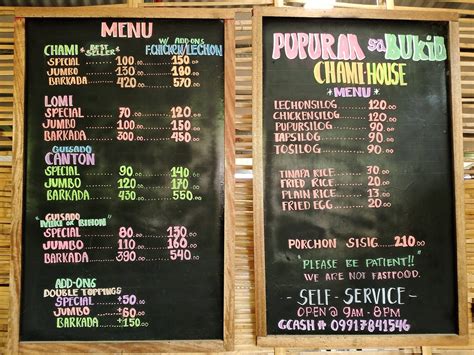 MENU
W/ ADD-ONS
CHAMI BEST SELLER F.CHICKEN/LECHON
SPECIAL 100.00 150.00
JUMBO 130.00 160.00
BARKADA 420 570
LOMI
SPECIAL 70.00 120.00
JUMBO 100.00 150.00
BARKADA 400.00 550.00
GUISADO
CANTON
SPECIAL 90.00 140.00
JUMBO 120 170
BARKADA 430 550.00
GUISADO
"MIKI or BIHON"
SPECIAL 110.00 160.00
JUMBO 110.00 160.00
BARKADA 390 540
ADD-ONS
DOUBLE TOPPINGS
SPECIAL +50.00
JUMBO +60.00
BARKADA +150
POPURAK sa BUKID
CHAMI HOUSE
MENU
LECHONSILOG 120.00
CHICKENSILOG 120.00
PUPURSILOG 90.00
TAPSILOG 90.00
TOSILOG 90.00
TINAPA RICE 30.00
FRIED RICE 20.00
PLAIN RICE 13.00
FRIED EGG 20.00
PORCHON SISIG 210.00
"PLEASE BE PATIENT!!"
WE ARE NOT FASTFOOD.
- SELF-SERVICE -
OPEN @ 9AM - 8PM
GCASH # 09917841546